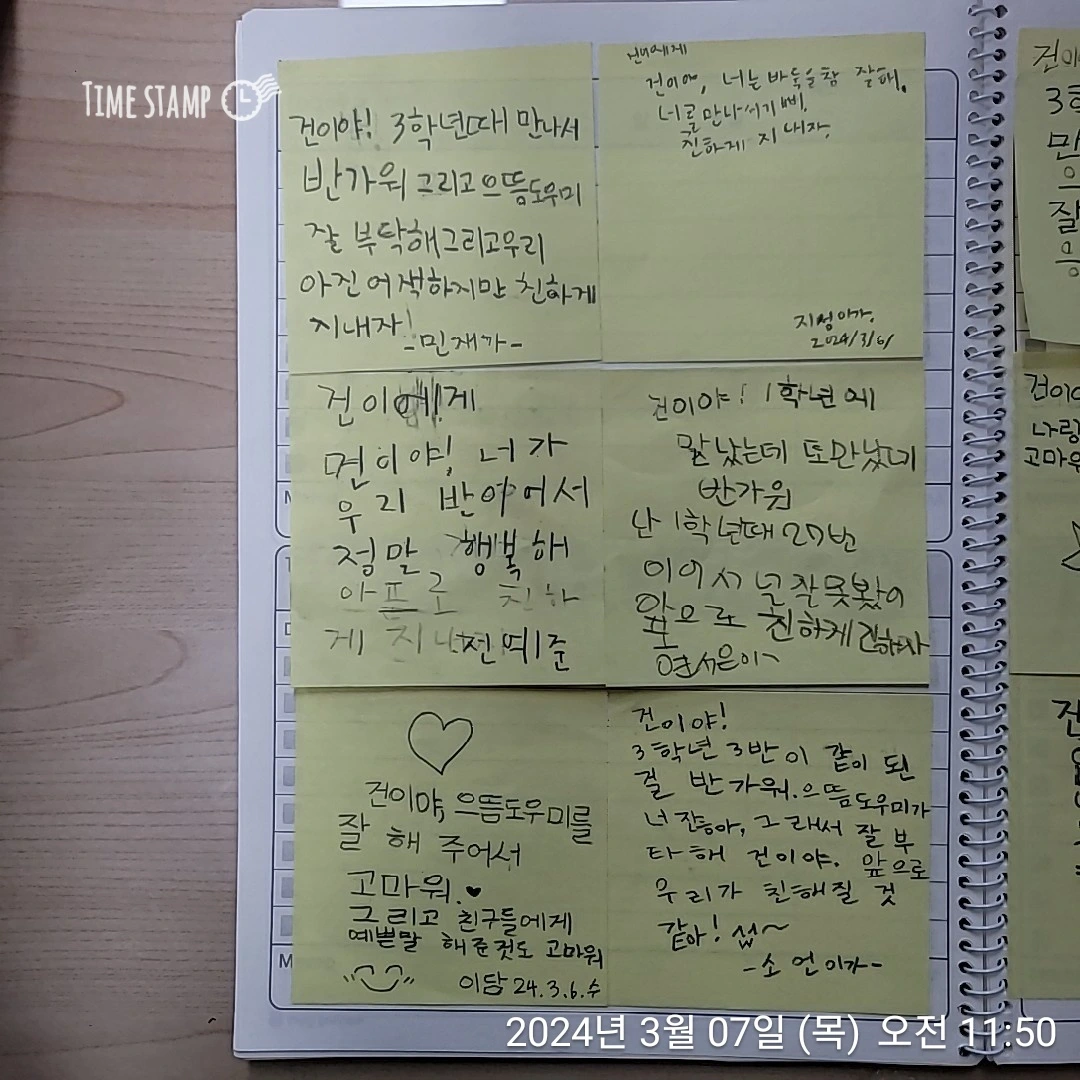 TIME STAMP
건이야! 3학년때 만나서
반가워 그리고 으뜸도우미
잘 부탁해 그리고 우리
아진 어색하지만 친하게
지내자!
-민재가-
건이에게
건이야, 너는 바둑을 참 잘해.
너를 만나서 기뻐.
친하게 지내자.
지성이가.
2024/3/6/
건이에게
건이야! 너가
우리 반이어서
정말 행복해
아프로 친하
게 지내 전예준
건이야! 1학년에
만났는데 또 만났네
반가워
난 1학년때 27번
이어서 널 잘 못봤어
앞으로 친하게 지내자
서은이가
건이야, 으뜸도우미를
잘 해 주어서
고마워.
그리고 친구들에게
예쁜말 해준것도 고마워
이담 24.3.6.수
건이야!
3학년 3반이 같이 된
걸 반가워. 으뜸도우미가
너 잖아, 그래서 잘 부
탁해 건이야. 앞으로
우리가 친해질 것
같아!
-소언이가-
건이
3학
만
잘
건이야
나랑
고마워
2024년 3월 07일 (목) 오전 11:50